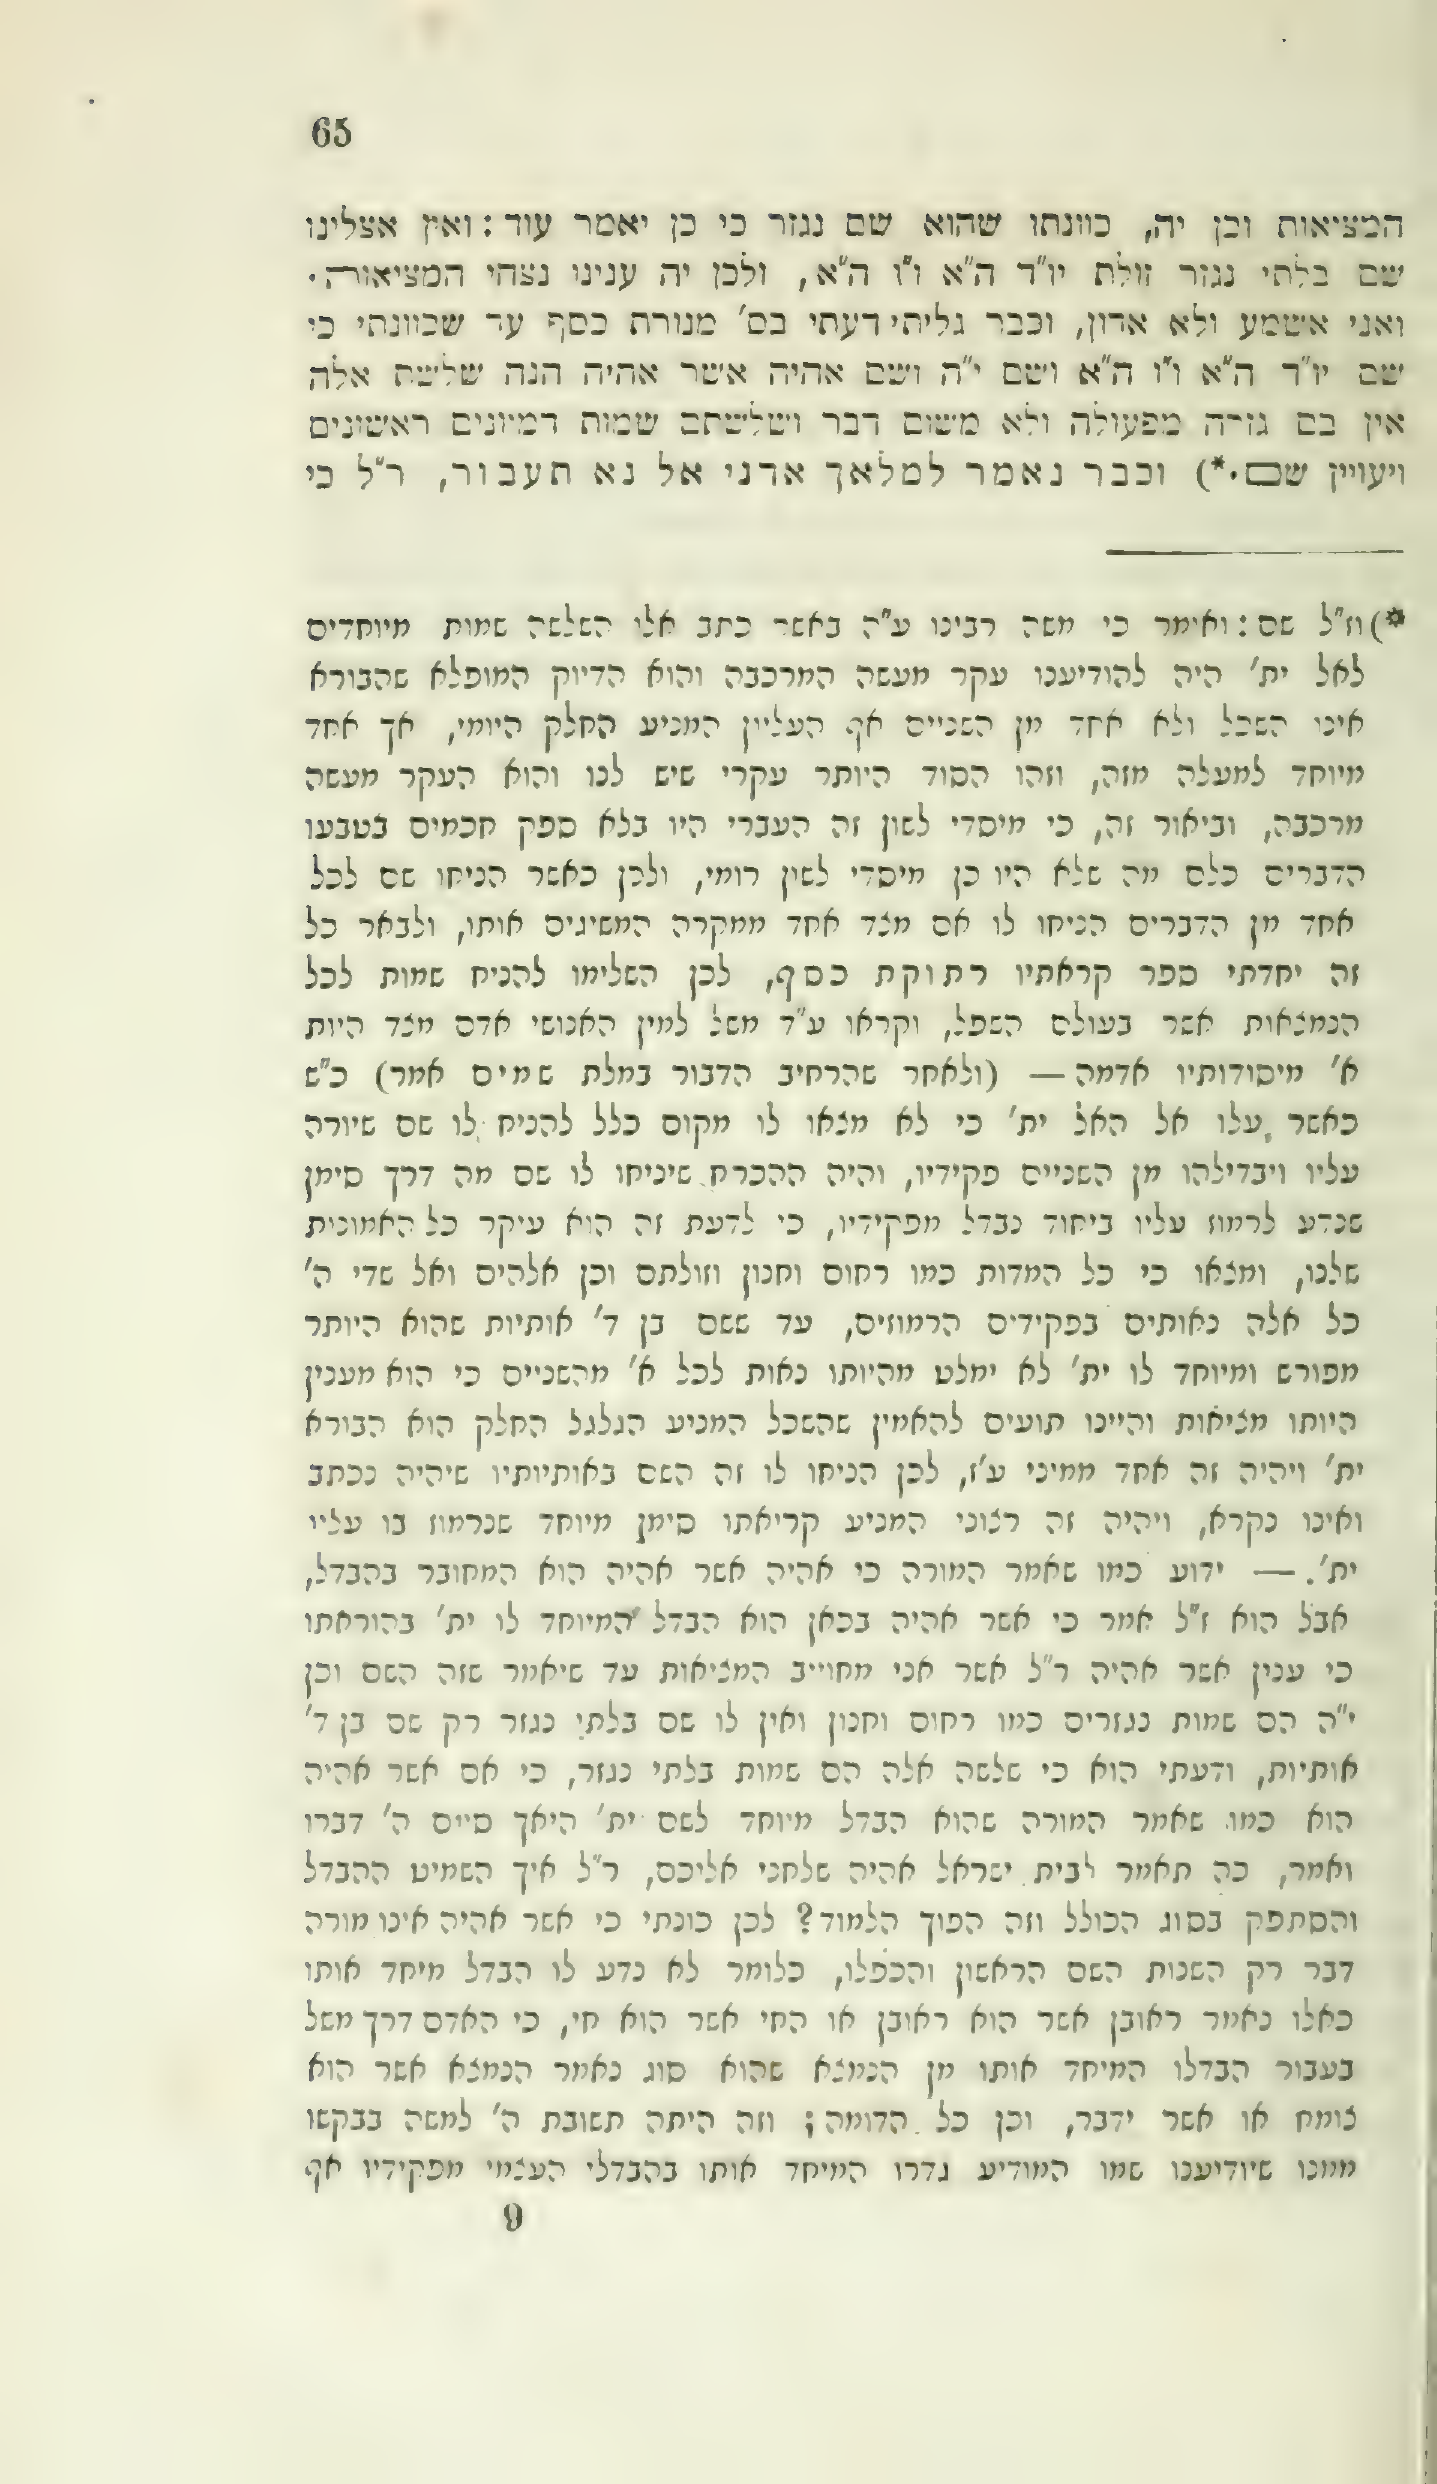 65
המציאות וכן יה, כוונתו שהוא שם נגזר כי כן יאמר עוד: ואין אצלינו
שם בלתי נגזר זולת יו"ד ה"א ו"ו ה"א, ולכן יה ענינו נצחי המציאורה.
ואני אשמע ולא אדון, וכבר גליתי דעתי בס' מנורת כסף עד שכוונתי כי
שם יו"ד ה"א ו"ו ה"א ושם י"ה ושם אהיה אשר אהיה הנה שלשת אלה
אין בם גזרה מפעולה ולא משום דבר ושלשתם שמות דמיונים ראשונים
ויעויין שם.*) וכבר נאמר למלאך אדני אל נא תעבור, ר"ל כי
*) וז"ל שם: ואימר כי משה רבינו ע"ה באשר כתב אלו השלשה שמות מיוחדים
לאל ית' היה להודיענו עקר מעשה המרכבה והוא הדיוק המופלא שהבורא
אינו השכל ולא אחד מן השניים אף העליון המניע החלק היומי, אך אחד
מיוחד למעלה מזה, וזהו הסוד היותר עקרי שיש לנו והוא העקר מעשה
מרכבה, וביאור זה, כי מיסדי לשון זה העברי היו בלא ספק חכמים בטבעו
הדברים כלם מה שלא היו כן מיסדי לשון רומי, ולכן כאשר הניחו שם לכל
אחד מן הדברים הניחו לו אם מצד אחד ממקרה המשיגים אותו, ולבאר כל
זה יחדתי ספר קראתיו רתוקת כסף, לכן השלימו להניח שמות לכל
הנמצאות אשר בעולם השפל, וקראו ע"ד משל למין האנושי אדם מצד היות
א' מיסודותיו אדמה — (ולאחר שהרחיב הדבור במלת שמים אמר) כ"ש
כאשר עלו אל האל ית' כי לא מצאו לו מקום כלל להניח לו שם שיורה
עליו ויבדילהו מן השניים פקידיו, והיה ההכרח שיניחו לו שם מה דרך סימן
שנדע לרמוז עליו ביחוד נבדל מפקידיו, כי לדעת זה הוא עיקר כל האמונית
שלנו, ומצאו כי כל המדות כמו רחום וחנון וזולתם וכן אלהים ואל שדי ה'
כל אלה נאותים בפקידים הרמוזים, עד ששם בן ד' אותיות שהוא היותר
מפורש ומיוחד לו ית' לא ימלט מהיותו נאות לכל א' מהשניים כי הוא מענין
היותו מציאות והיינו תועים להאמין שהשכל המניע הגלגל החלק הוא הבורא
ית' ויהיה זה אחד ממיני ע'ז, לכן הניחו לו זה השם באותיותיו שיהיה נכתב
ואינו נקרא, ויהיה זה רצוני המניע קריאתו סימן מיוחד שנרמוז בו עליו
ית'. — ידוע כמו שאמר המורה כי אהיה אשר אהיה הוא המחובר בהבדל,
אבל הוא ז"ל אמר כי אשר אהיה בכאן הוא הבדל המיוחד לו ית' בהוראתו
כי ענין אשר אהיה ר"ל אשר אני מחוייב המציאות עד שיאמר שזה השם וכן
י"ה הם שמות נגזרים כמו רחום וחנון ואין לו שם בלתי נגזר רק שם בן ד'
אותיות, ודעתי הוא כי שלשה אלה הם שמות בלתי נגזר, כי אם אשר אהיה
הוא כמו שאמר המורה שהוא הבדל מיוחד לשם ית' היאך סיים ה' דברו
ואמר, כה תאמר לבית ישראל אהיה שלחני אליכם, ר"ל איך השמיט ההבדל
והסתפק בסוג הכולל וזה הפוך הלמוד? לכן כונתי כי אשר אהיה אינו מורה
דבר רק השנות השם הראשון והכפלו, כלומר לא נדע לו הבדל מיחד אותו
כאלו נאמר ראובן אשר הוא ראובן או החי אשר הוא חי, כי האדם דרך משל
בעבור הבדלו המיחד אותו מן הנמצא שהוא סוג נאמר הנמצא אשר הוא
צומח או אשר ידבר, וכן כל הדומה; וזה היתה תשובת ה' למשה בבקשו
ממנו שיודיענו שמו המודיע גדרו המיחד אותו בהבדלי העצמי מפקידיו אף
9